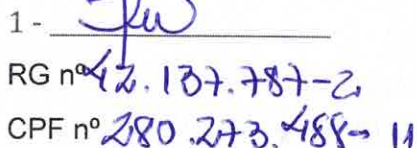 1 -
RG nº 42.137.787-2
CPF nº 280.273.488-11